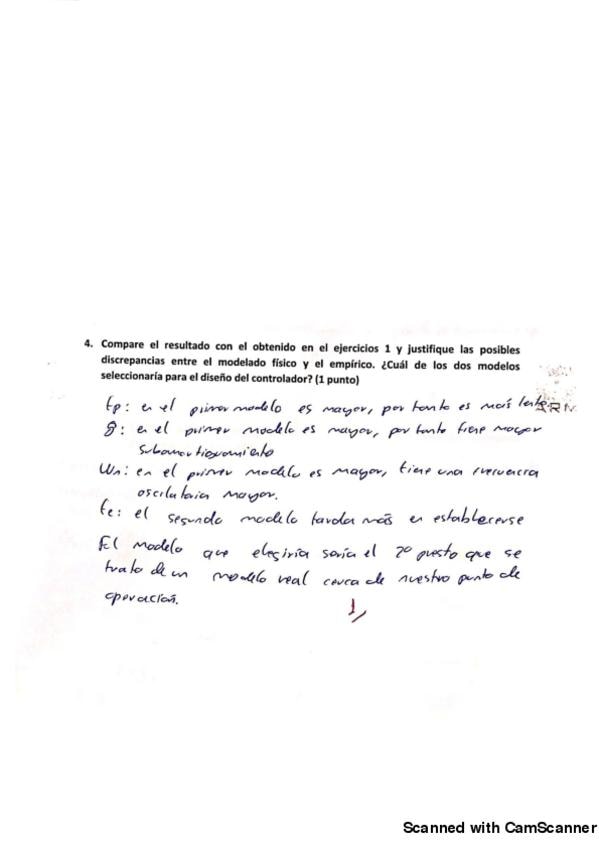 4. Compare el resultado con el obtenido en el ejercicios 1 y justifique las posibles
discrepancias entre el modelado físico y el empírico. ¿Cuál de los dos modelos
seleccionaría para el diseño del controlador? (1 punto)
tp: en el primer modelo es mayor, por tanto es más lento
g: en el primer modelo es mayor, por tanto tiene mayor
subamortiguamiento
Wn: en el primer modelo es mayor, tiene una frecuencia
oscilatoria mayor.
te: el segundo modelo tarda más en establecerse
El modelo que elegiría sería el 2º puesto que se
trata de un modelo real cerca de nuestro punto de
operación.
1
Scanned with CamScanner